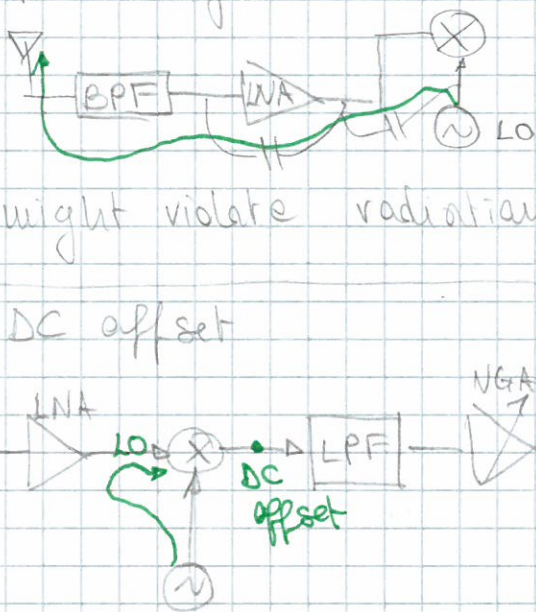 BPF LNA LO
might violate radiation
DC offset
LNA VGA
LO LPF
DC
offset